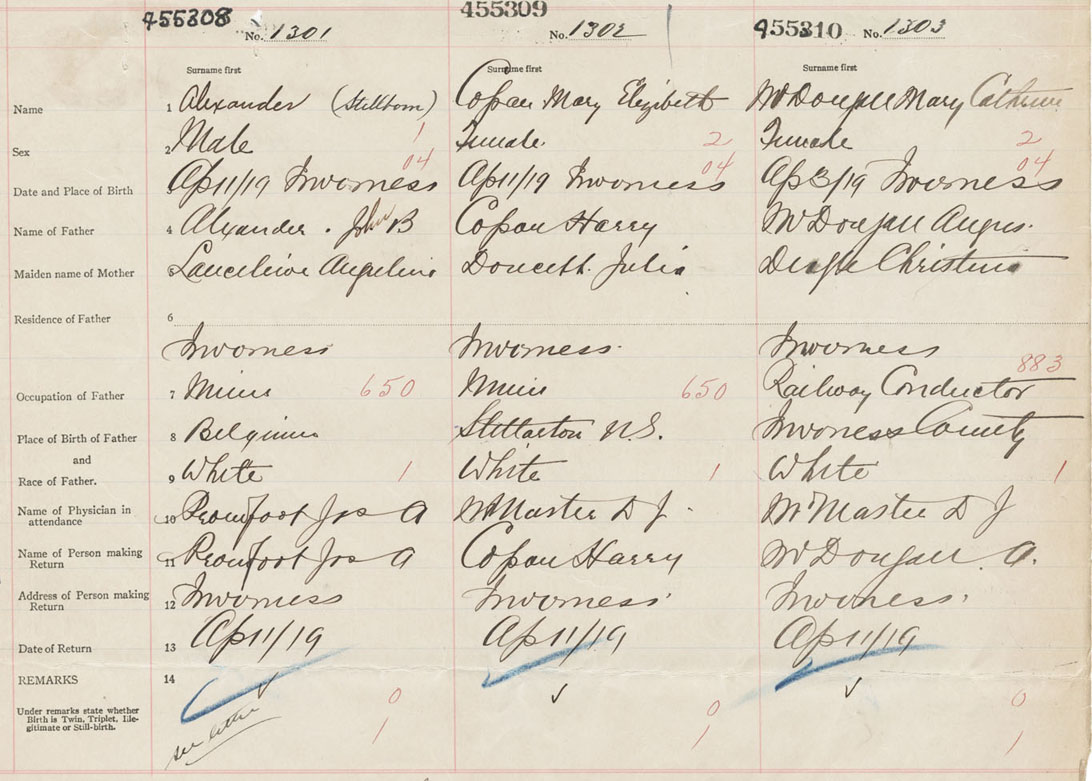 455308 No. 1301 455309 No. 1302 455310 No. 1303
Surname first Surname first Surname first
Name 1 Alexander (Stillborn) Copan Mary Elizibeth McDougall Mary Catherine
Sex 2 Male 1 Female 2 Female 2
04 04 04
Date and Place of Birth 3 Ap 11/19 Inverness Ap 11/19 Inverness Ap 3/19 Inverness
Name of Father 4 Alexander . John B Copan Harry McDougall Angus.
Maiden name of Mother 5 Angelina Doucett. Julia Christina
Residence of Father 6
Inverness Inverness Inverness
883
Occupation of Father 7 Miner 650 Miner 650 Railway Conductor
Place of Birth of Father 8 Belgium Stellarton N.S. Inverness County
and
Race of Father. 9 White 1 White 1 White 1
Name of Physician in attendance 10 Proudfoot Jos A McMaster D J. McMaster D J
Name of Person making Return 11 Proudfoot Jos A Copan Harry McDougall A.
Address of Person making Return 12 Inverness Inverness Inverness.
Date of Return 13 Ap 11/19 Ap 11/19 Ap 11/19
REMARKS 14
0 0 0
Under remarks state whether
Birth is Twin, Triplet, Ille-
gitimate or Still-birth.
see letter
1 1 1